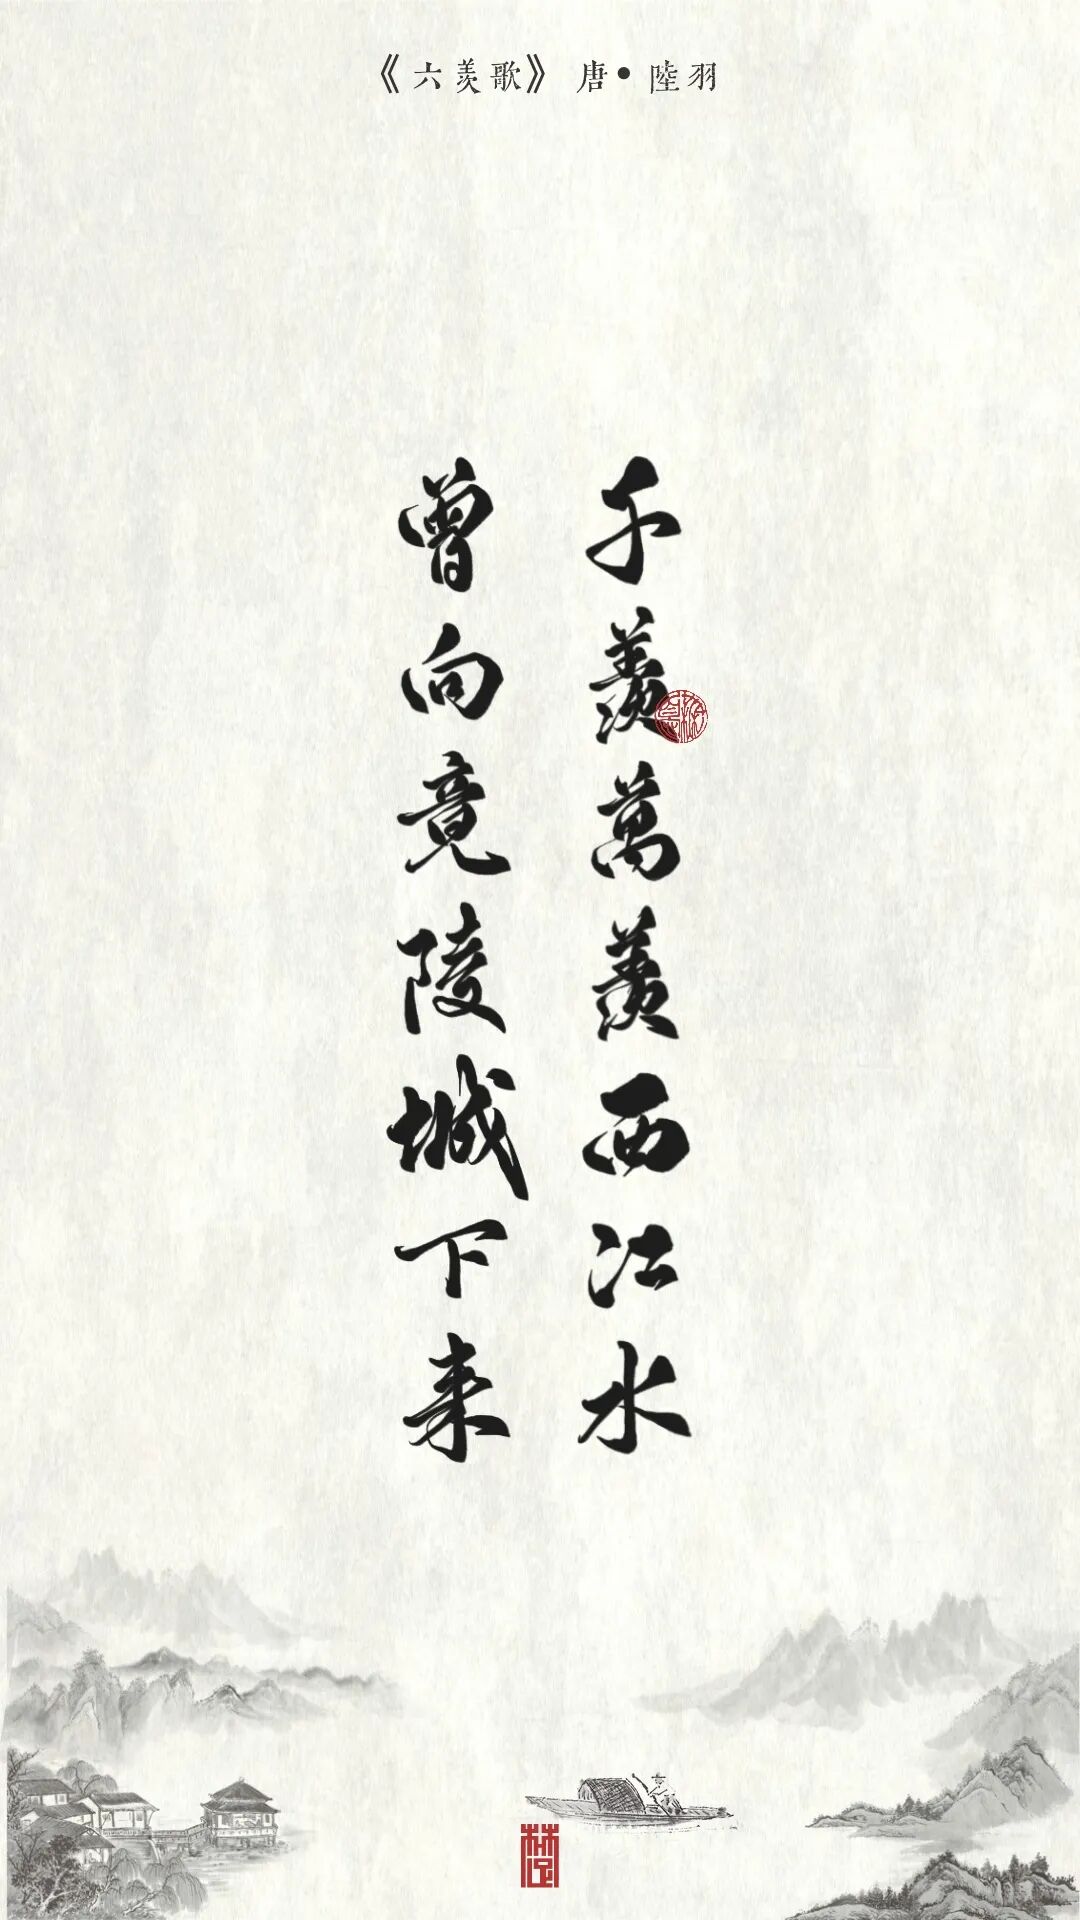 《六羨歌》 唐•陸羽
千羨萬羨西江水
曾向竟陵城下來